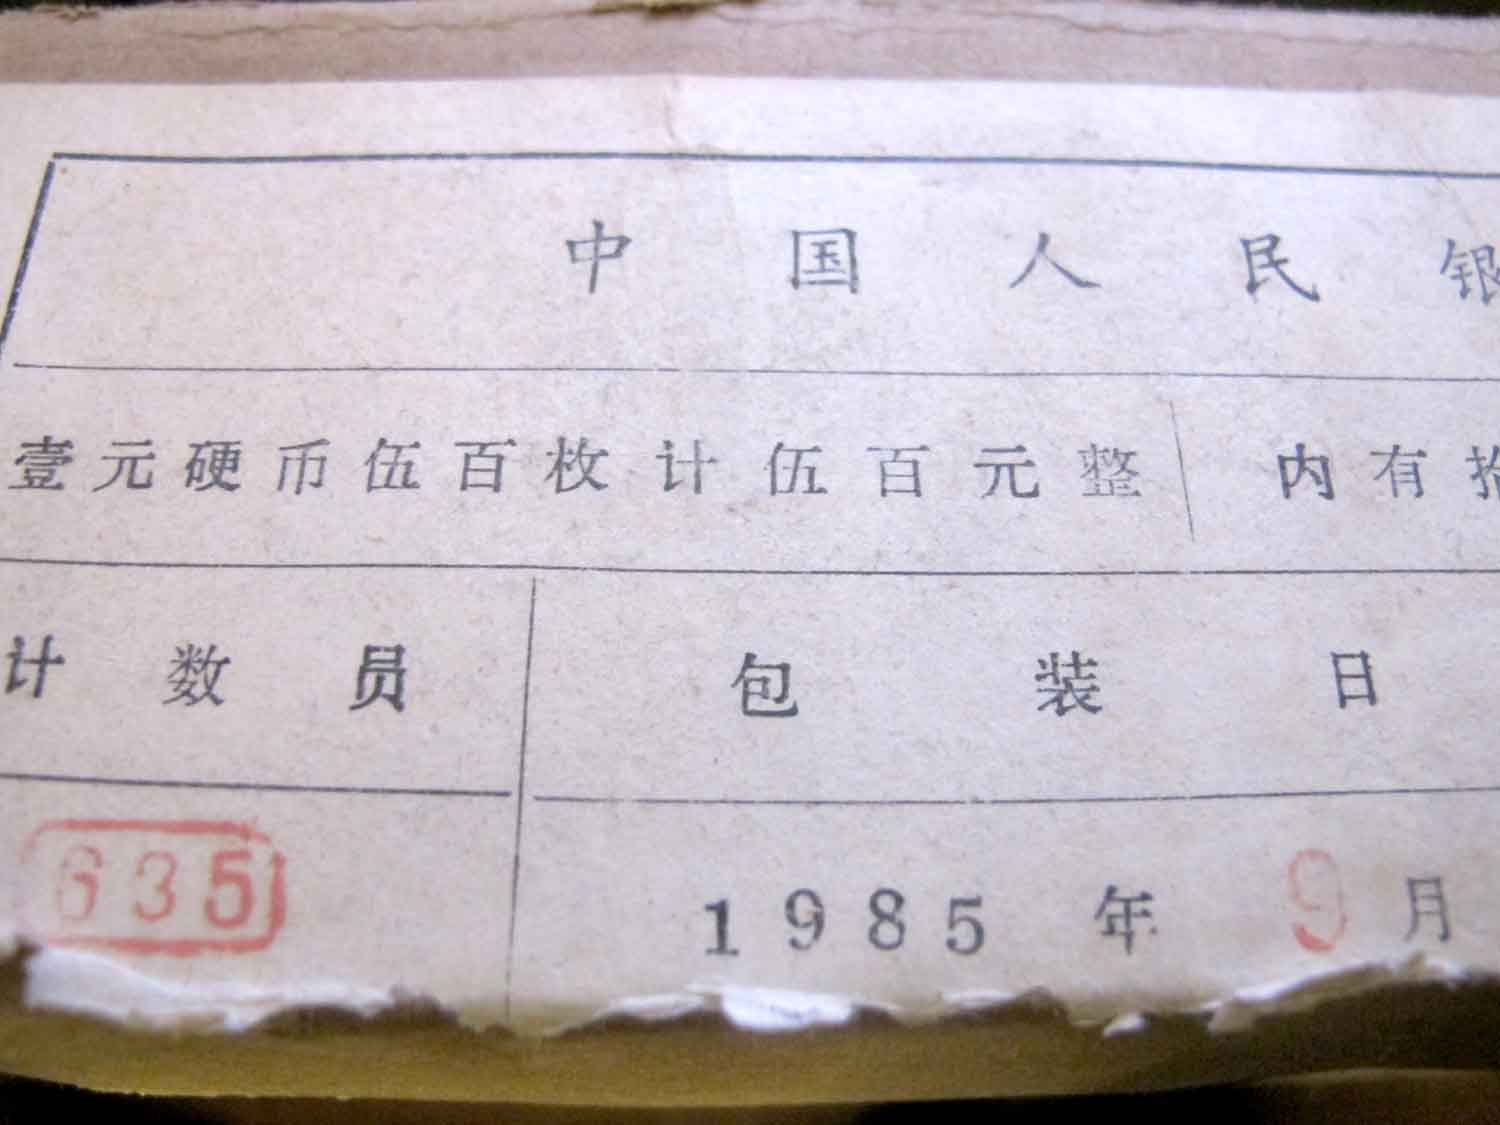 中国人民银
壹元硬币伍百枚计伍百元整 内有拾
计数员 包装日
635 1985年9月